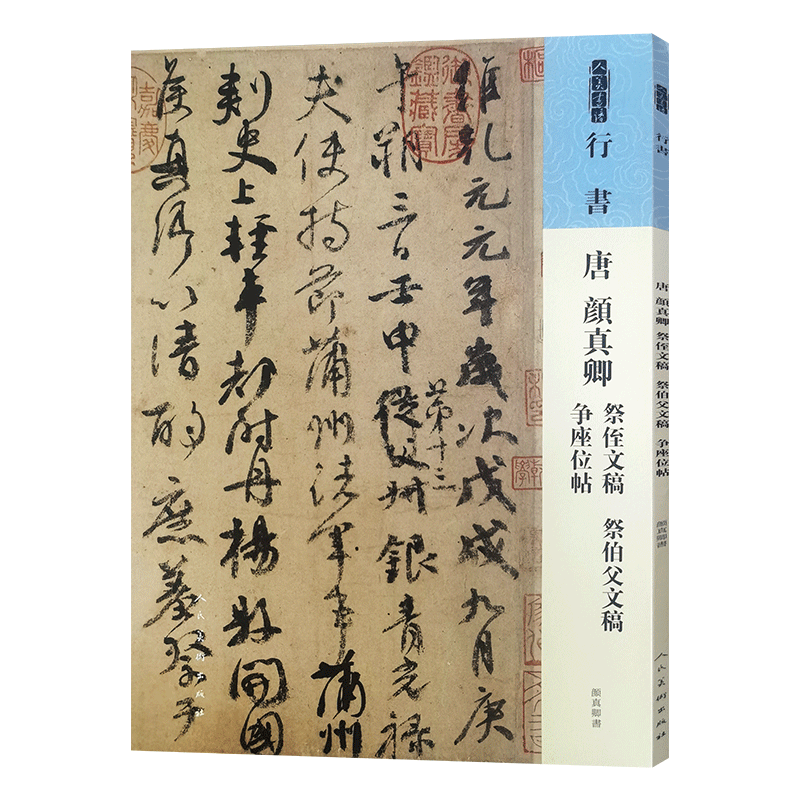 人美書譜
行書
唐 顔真卿
祭侄文稿 祭伯父文稿
争座位帖
顔真卿書
維乾元元年歲次戊戌九月庚
午朔三日壬申從父銀青光禄
第十三
夫使持節蒲州諸軍事蒲州
刺史上輕車都尉丹楊縣開國
侯真卿以清酌庶羞祭于
人民美術出版社
御書房鑑藏寶
嘉慶
行書
唐 顔真卿 祭侄文稿 祭伯父文稿 争座位帖
顔真卿書
人民美術出版社